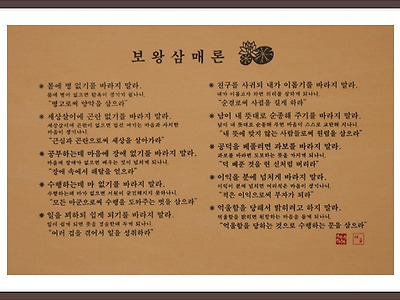 보왕삼매론
※ 몸에 병 없기를 바라지 말라.
몸에 병이 없으면 탐욕이 생기기 쉽나니,
"병고로써 양약을 삼으라"
※ 세상살이에 곤란 없기를 바라지 말라.
세상살이에 곤란이 없으면 업신 여기는 마음과 사치한
마음이 생기나니,
"근심과 곤란으로써 세상을 살아가라"
※ 공부하는데 마음에 장애 없기를 바라지 말라.
마음에 장애가 없으면 배우는 것이 넘치게 되나니,
"장애 속에서 해탈을 얻으라"
※ 수행하는데 마 없기를 바라지 말라.
수행하는데 마가 없으면 서원이 굳건해지지 못하나니,
"모든 마군으로써 수행을 도와주는 벗을 삼으라"
※ 일을 꾀하되 쉽게 되기를 바라지 말라.
일이 쉽게 되면 뜻을 경솔한데 두게 되나니,
"여러 겁을 겪어서 일을 성취하라"
※ 친구를 사귀되 내가 이롭기를 바라지 말라.
내가 이롭고자 하면 의리를 상하게 되나니,
"순결로써 사귐을 길게 하라"
※ 남이 내 뜻대로 순종해 주기를 바라지 말라.
남이 내 뜻대로 순종해 주면 마음이 스스로 교만해 지나니,
"내 뜻에 맞지 않는 사람들로써 원림을 삼으라"
※ 공덕을 베풀려면 과보를 바라지 말라.
과보를 바라면 도모하는 뜻을 가지게 되나니,
"덕 베푼 것을 헌 신처럼 버리라"
※ 이익을 분에 넘치게 바라지 말라.
이익이 분에 넘치면 어리석은 마음이 생기나니,
"적은 이익으로써 부자가 되라"
※ 억울함을 당해서 밝히려고 하지 말라.
억울함을 밝히면 원망하는 마음을 돕게 되나니,
"억울함을 당하는 것으로 수행하는 문을 삼으라"